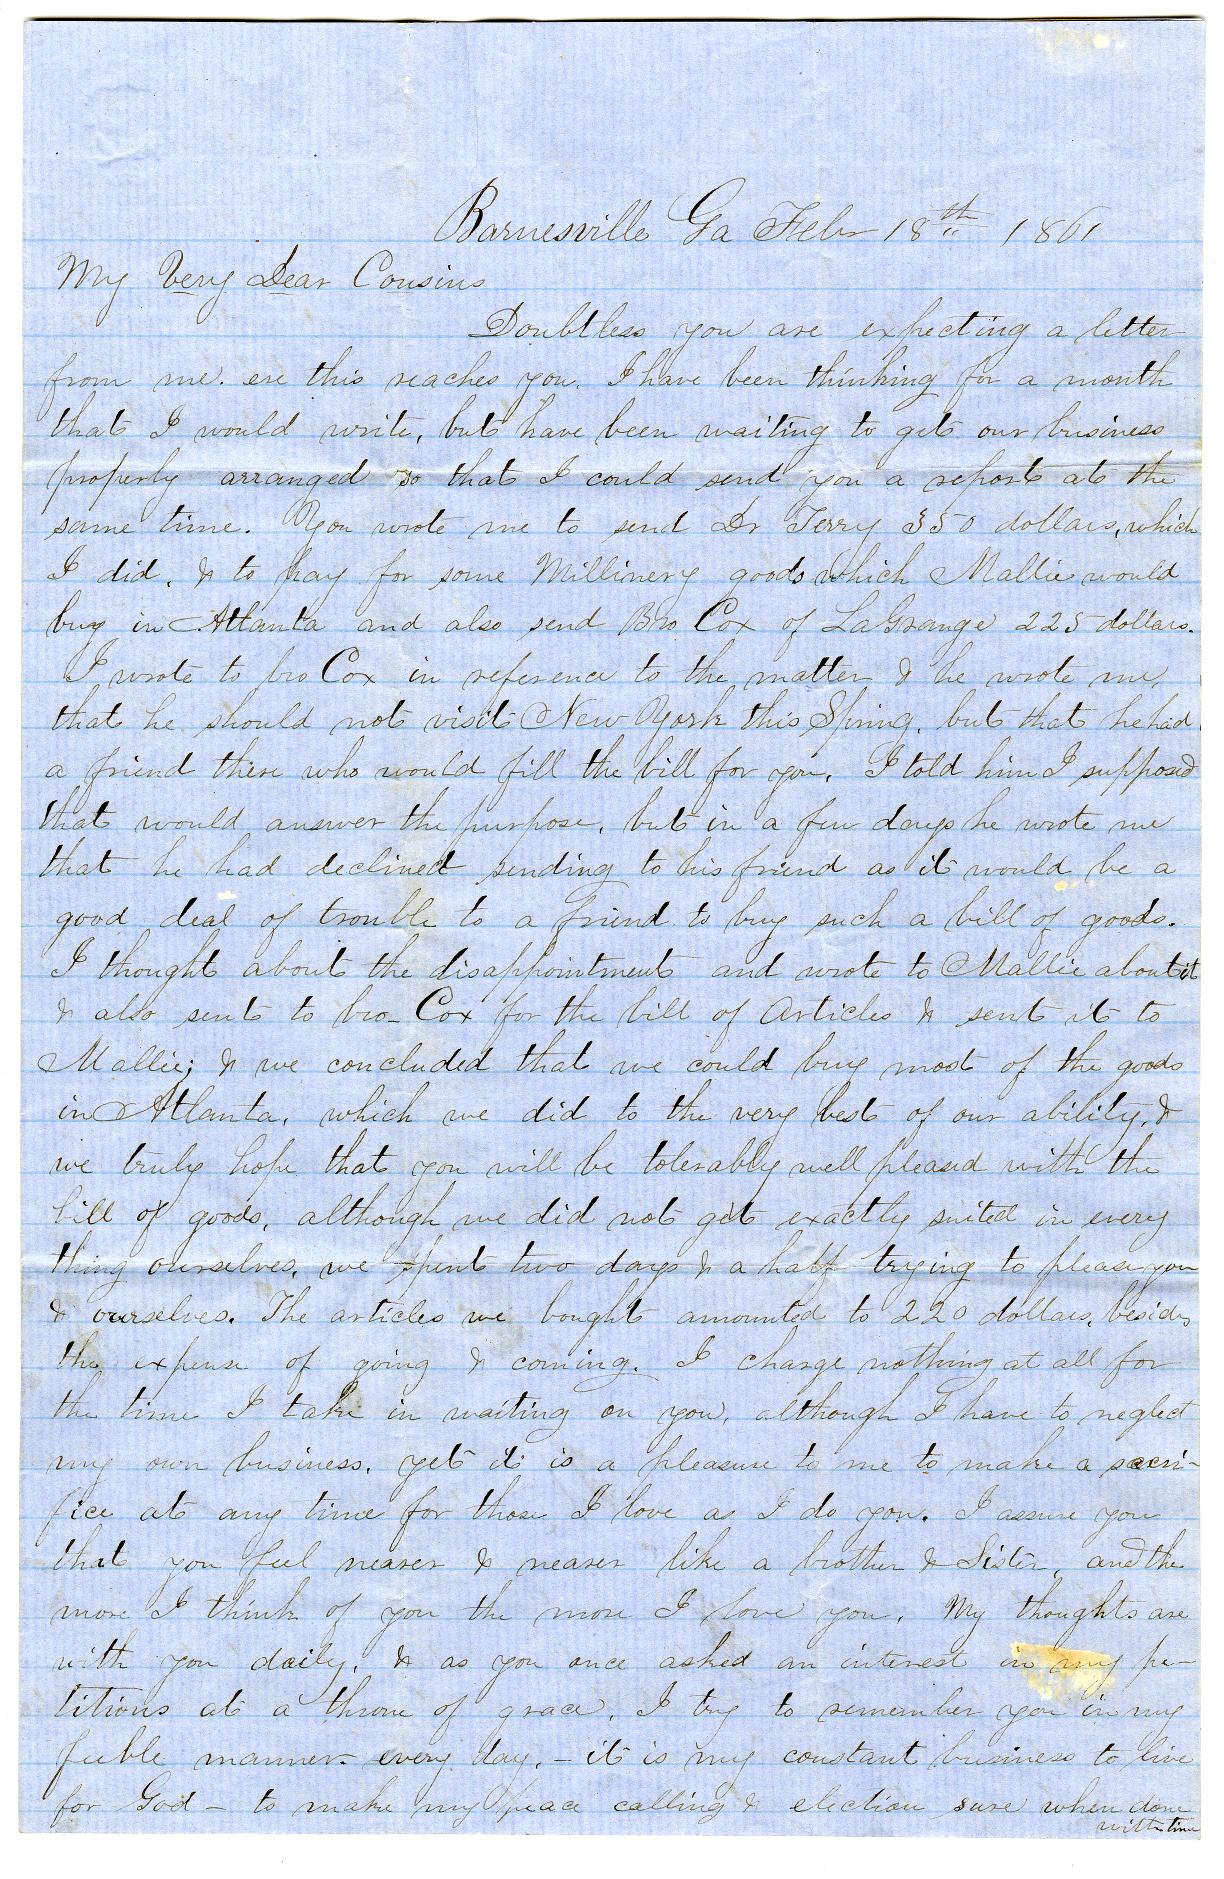 Barnesville Ga Febr 18th 1861
My Very Dear Cousins
Doubtless you are expecting a letter
from me. ere this reaches you. I have been thinking for a month
that I would write, but have been waiting to get our business
properly arranged so that I could send you a report at the
same time. You wrote me to send Dr Terry $50 dollars, which
I did, & to pay for some Millinery goods which Mallie would
buy in Atlanta and also send Bro Cox of LaGrange 225 dollars.
I wrote to bro Cox in reference to the matter & he wrote me,
that he should not visit New York this Spring, but that he had
a friend there who would fill the bill for you, I told him I supposed
that would answer the purpose, but in a few days he wrote me
that he had declined sending to his friend as it would be a
good deal of trouble to a friend to buy such a bill of goods.
I thought about the disappointment and wrote to Mallie about it
& also sent to bro- Cox for the bill of Articles & sent it to
Mallie; & we concluded that we could buy most of the goods
in Atlanta, which we did to the very best of our ability, &
we truly hope that you will be tolerably well pleased with the
bill of goods, although we did not get exactly suited in every
thing ourselves, we spent two days & a half trying to please you
& ourselves. The articles we bought amounted to 220 dollars, besides
the expense of going & coming. I charge nothing at all for
the time I take in waiting on you, although I have to neglect
my own business, yet it is a pleasure to me to make a sacri-
fice at any time for those I love as I do you. I assure you
that you feel nearer & nearer like a brother & Sister, and the
more I think of you the more I love you. My thoughts are
with you daily, & as you once asked an interest in my pe-
titions at a throne of grace, I try to remember you in my
feeble manner every day, - it is my constant business to live
for God - to make my peace calling & election sure when done
with time